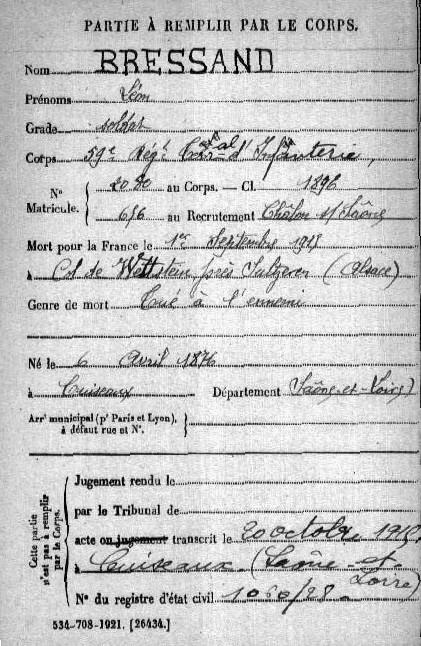 PARTIE À REMPLIR PAR LE CORPS.
Nom BRESSAND
Prénoms Léon
Grade soldat
Corps 59e Régt d'Infanterie,
N° Matricule. { 2080 au Corps. — Cl. 1896
656 au Recrutement Châlon s/ Saône
Mort pour la France le 1er Septembre 1915
à Col de Wettstein près Sulzeren (Alsace)
Genre de mort Tué à l'ennemi
Né le 6 Avril 1876
à Cuiseaux Département Saône-et-Loire
Arrt municipal (pr Paris et Lyon), à défaut rue et N°.
Cette partie n'est pas à remplir par le Corps.
Jugement rendu le
par le Tribunal de
acte ou jugement transcrit le 20 octobre
à Cuiseaux (Saône-et-Loire)
N° du registre d'état civil 1060/28
534-708-1921. [26434.]